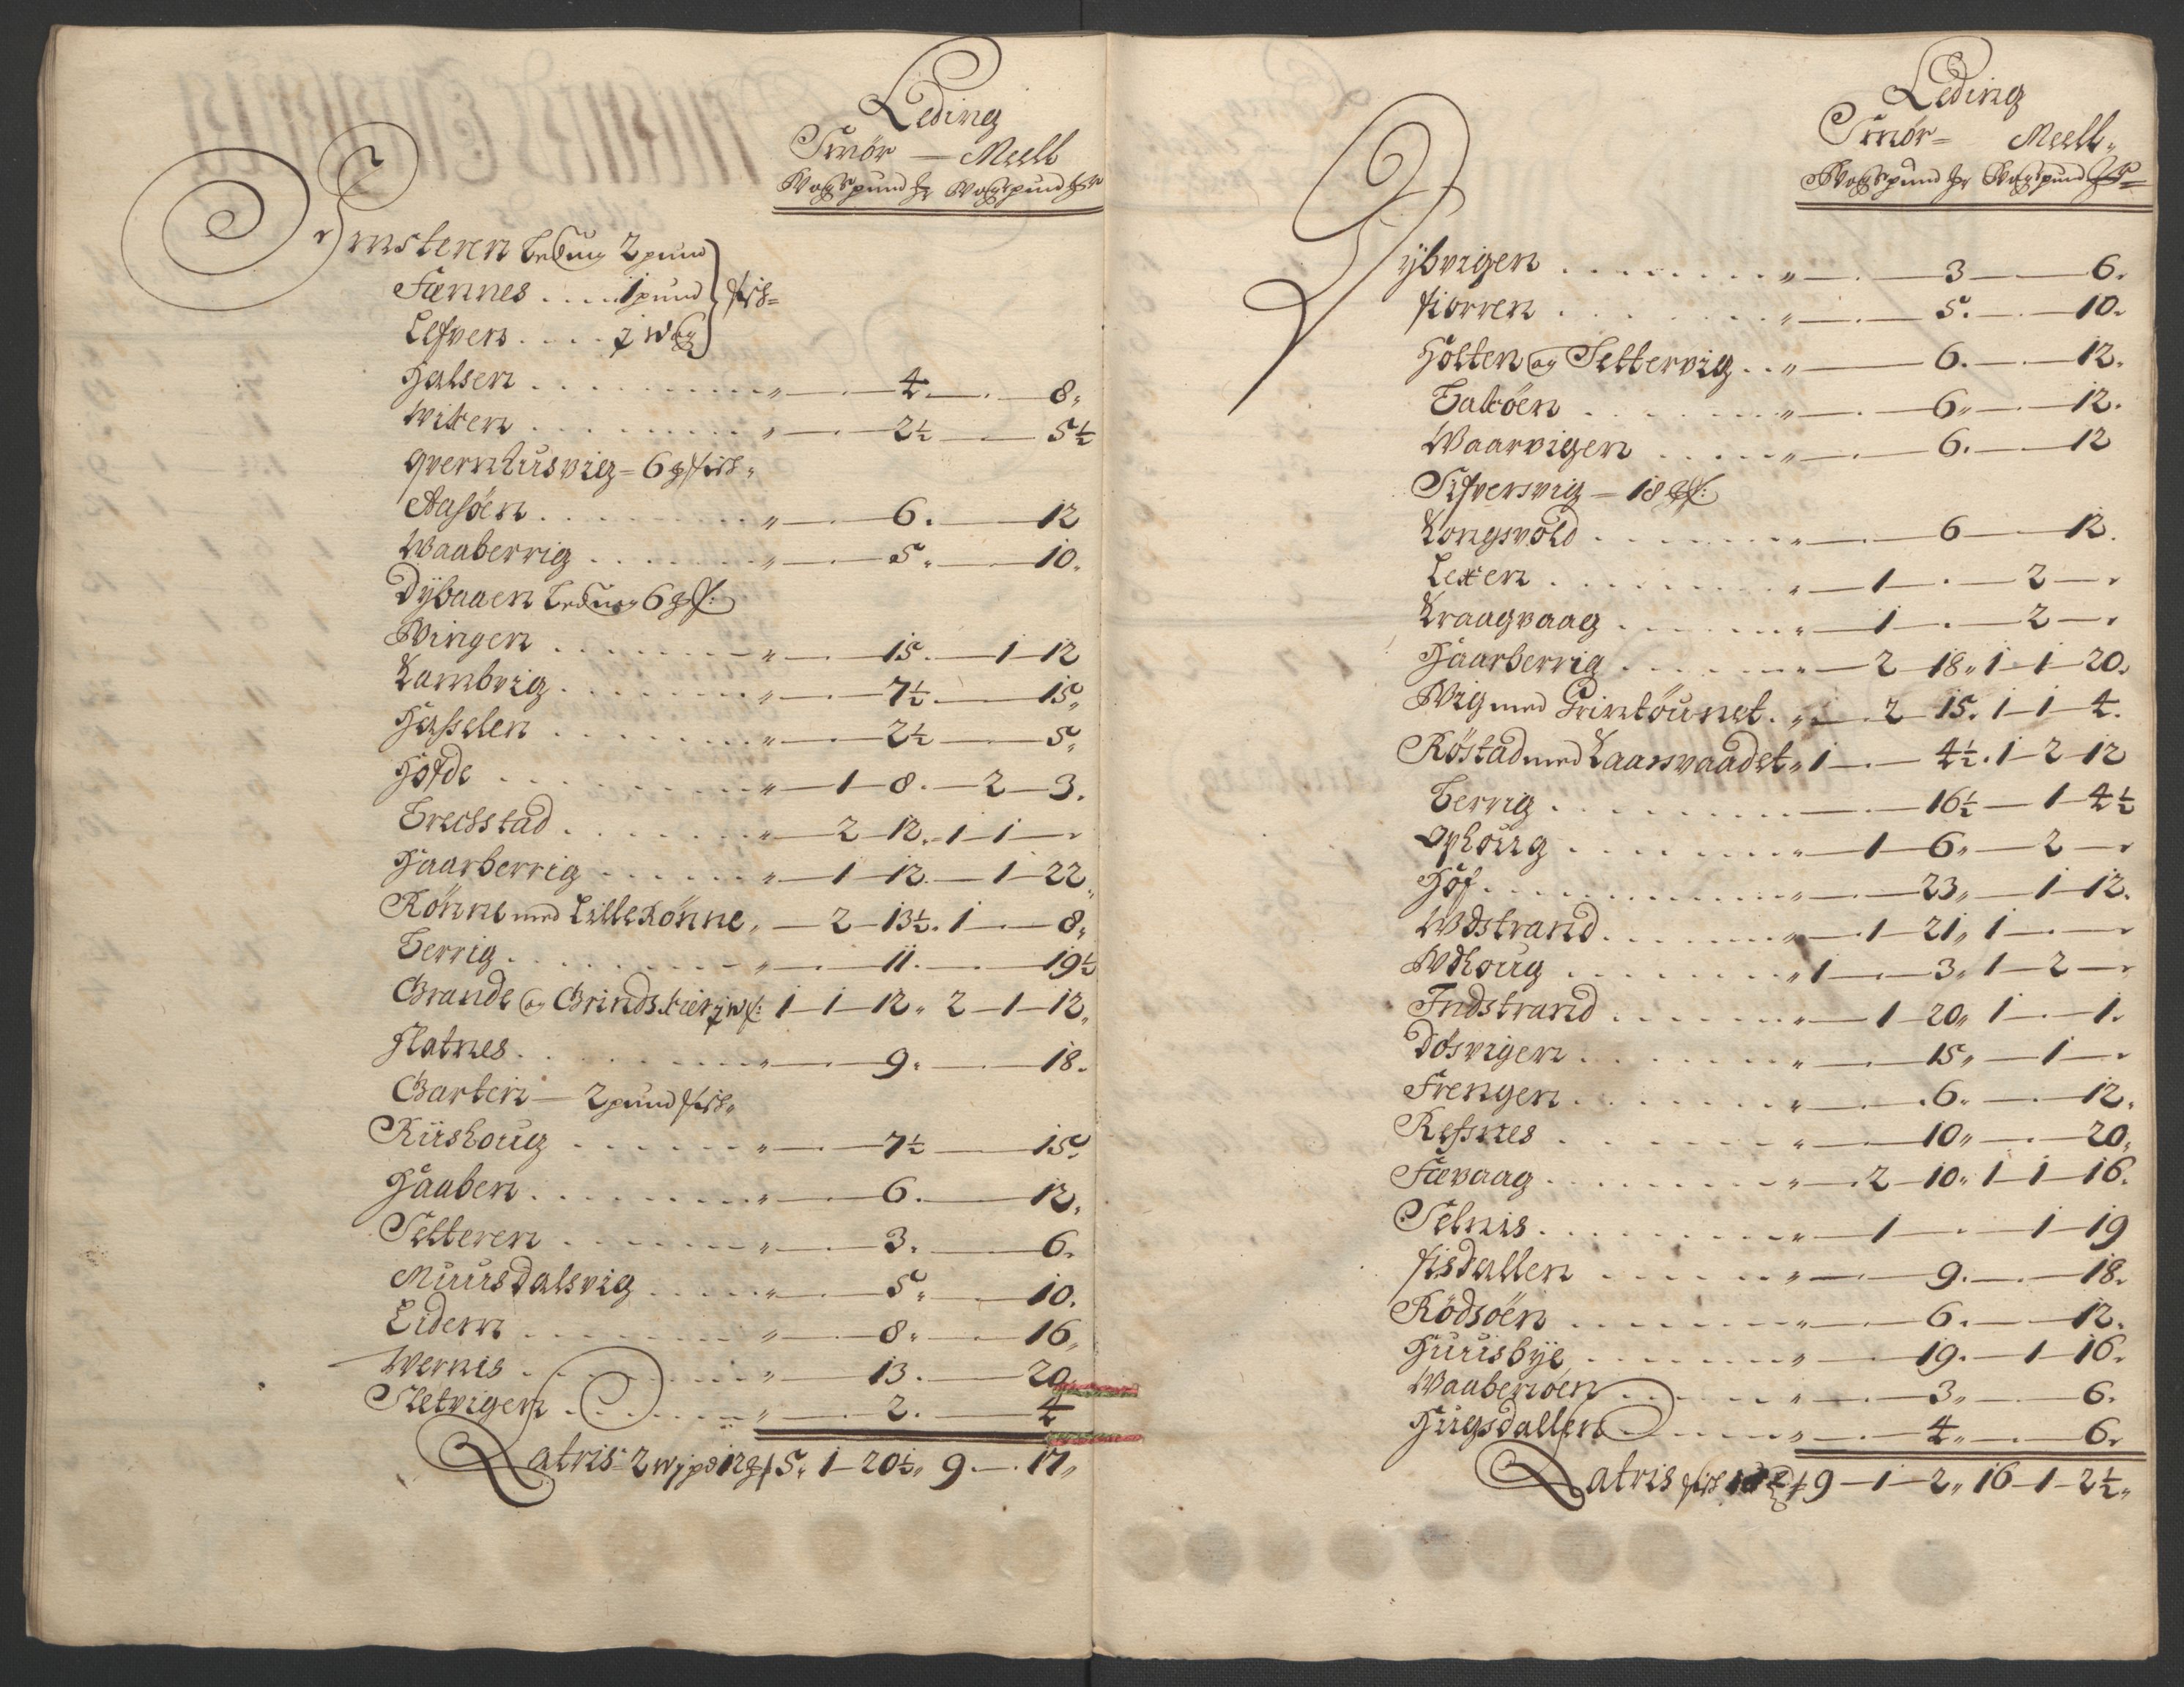 Leding
Smör — Meell
Wog Pund
Imsteren Leding 2 pund
Fænnes . . . . 1 pund fisk=
Lefven . . . . ½ Wog
Halsen . . . " — 4 — 8,
Witen . . . " — 2½ — 5½
Qvernhusvig = 6 fisk "
Aasöen . . . " — 6. — 12
Waaberrig . . . " — 5. — 10.
Dybaaen Leding 6
Wingen . . . " — 15. — 1 — 12
Kambvig . . . " — 7½ — 15,
Hasselen . . . " — 2½ — 5,
Hofde . . . " — 1 — 8. — 2 — 3.
Brechstad . . . " — 2 — 12. — 1 — 1 — "
Haarberrig . . . " — 1 — 12. — 1 — 22,
Rönne med Lille Rönne, — 2 — 13½. 1 — 8,
Berrig . . . " — 11. — 19½
Grande og Grindskier ½ w f: 1 — 1 — 12, 2 — 1 — 12,
Flatnes . . . " — 9. — 18.
Garten — 2 pund fisk,
Riishoug . . . " — 7½ — 15,
Haaben . . . " — 6. — 12,
Setteren . . . " — 3. — 6.
Muusdalsvig . . . " — 5, — 10.
Eidem . . . " — 8. — 16,
Wernis . . . " — 13. — 20,
Sletvigen . . . " — 2. — 4
Latris 2 w 1 pd 12 f 5. 1 — 20½, 9 — . 17,
Leding
Smör = Meell,
Wog Pund
Dybvigen . . . " — 3 — 6.
Kiorren . . . " — 5. — 10.
Holten og Settervig . . " — 6. — 12.
Balköen . . . " — 6, — 12.
Waarvigen . . . " — 6. — 12
Sifversvig = 18
Kongsvold . . . " — 6 — 12.
Lexen . . . " — 1 — . — 2 — "
Kraagvaag . . . " — 1 — . — 2 — "
Haarberrig . . . " — 2 — 18, 1 — 1 — 20.
Wig med Grimtöunet . " — 2 — 15. 1 — 1 — 4.
Röstad med Laasvaadet " 1 — . — 4½. 1 — 2 — 12
Berrig . . . — 16½ — 1 — 4½
Ophoug . . . " — 1 — 6, — 2 — "
Höf . . . " — 23, — 1 — 12.
Wdstrand . . . " — 1 — 21, 1 — . — "
Wdhoug . . . " 1 — 3, 1 — 2 — "
Indstrand . . . " — 1 — 20, 1 — . — 1.
Dösvigen . . . " — 15, — 1 — "
Frengen . . . " — 6. — 12,
Refsnes . . . " — 10, — 20,
Fævaag . . . " — 2 — 10, 1 — 1 — 16.
Selnis . . . " — 1 — . — 1 — 19
Fisdallen . . . " — 9. — 18.
Rödsöen . . . " — 6. — 12.
Huusbye . . . " — 19. — 1 — 16.
Waabenöen . . . " — 3, — 6.
Hugsdallen . . . " — 4, — 6.
Latris fisk 9 — 1 — 2, 16 — 1 — 2½,